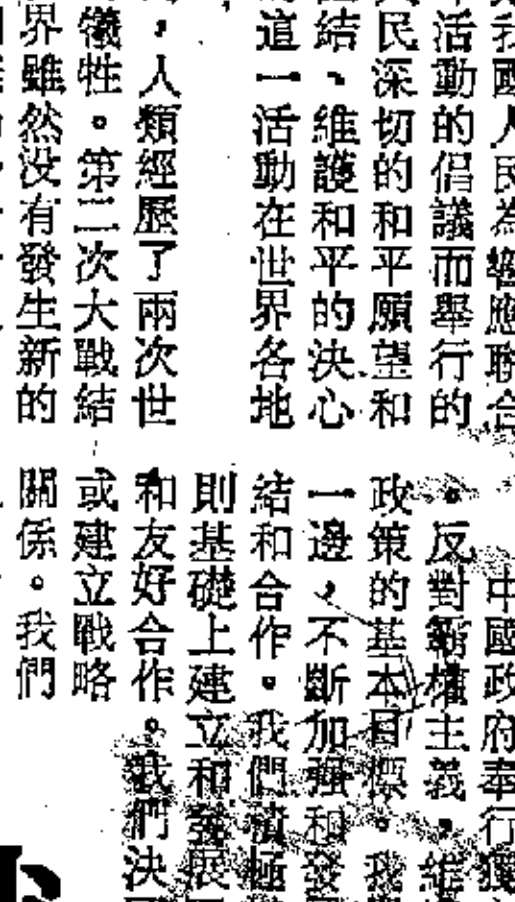 我國人民為響應聯合
活動的倡議而舉行的
民深切的和平願望和
結、維護和平的決心
這一活動在世界各地
，人類經歷了兩次世
犧牲。第二次大戰結
界雖然没有發生新的
中國政府奉行獨
。反對霸權主義、維
政策的基本目標。我
一邊，不斷加强和發
結和合作。我們積極
則基礎上建立和發展
和友好合作。我們決
或建立戰略
關係。我們